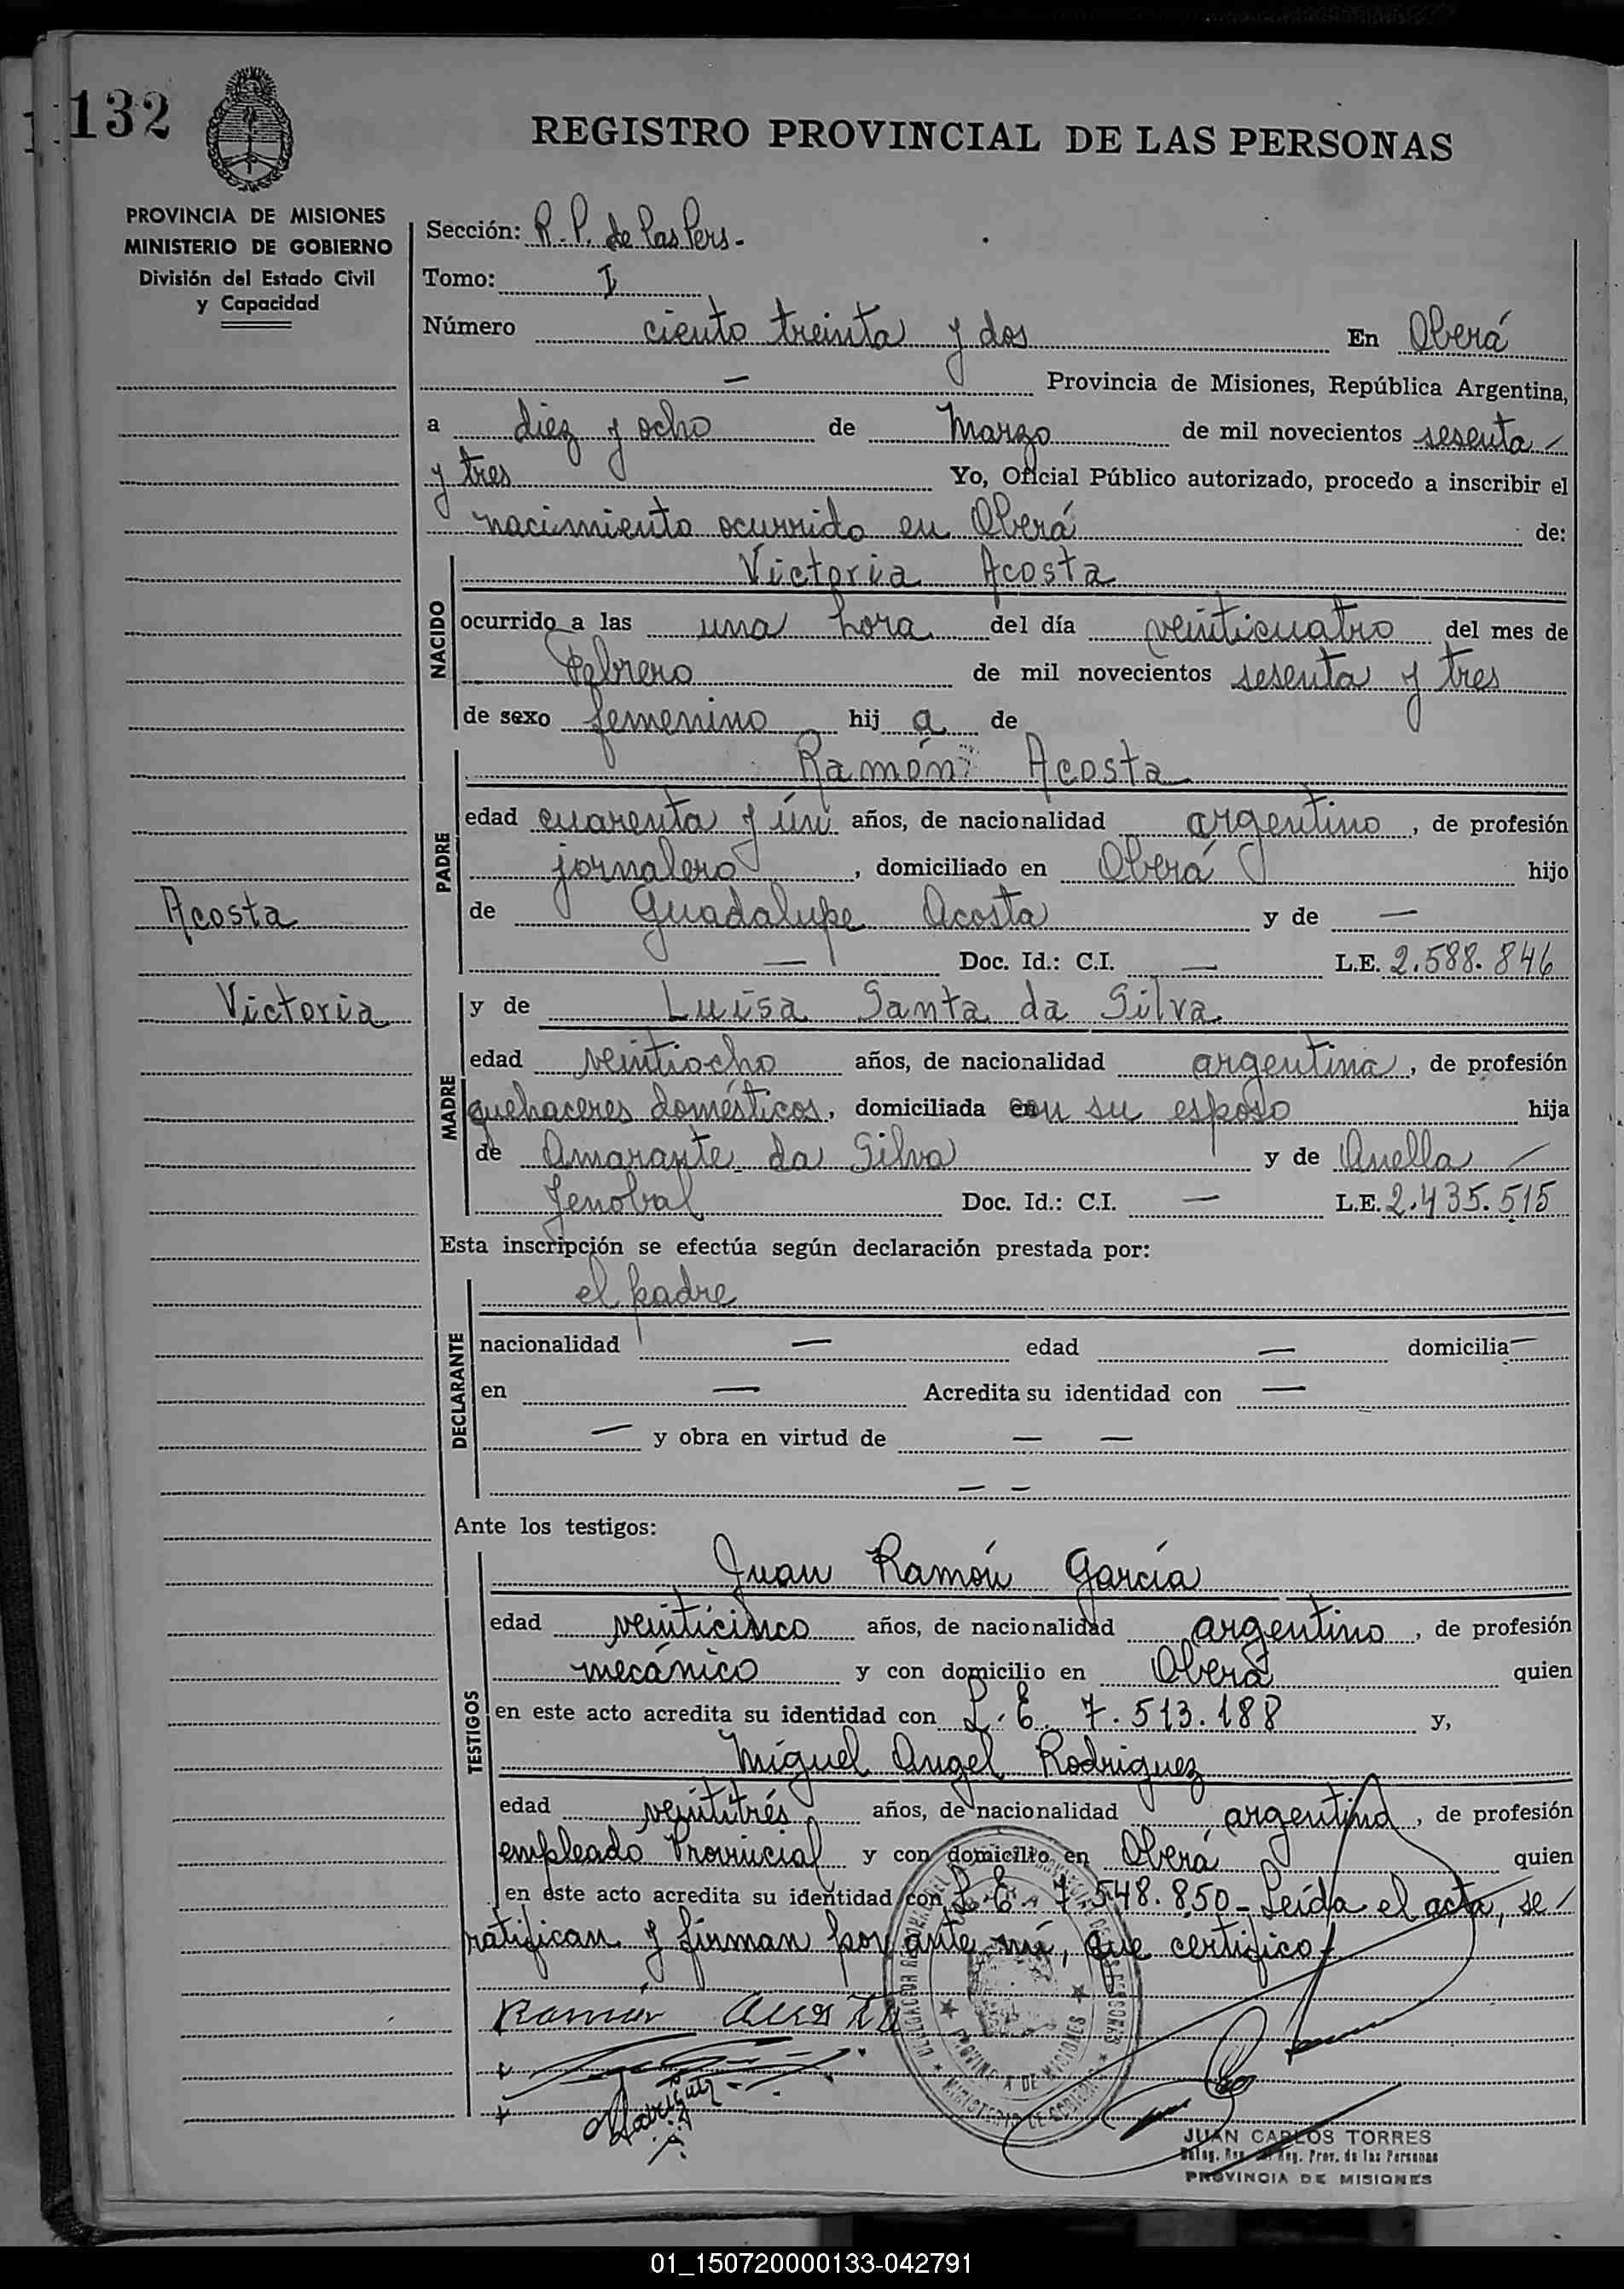 132
REGISTRO PROVINCIAL DE LAS PERSONAS
PROVINCIA DE MISIONES
MINISTERIO DE GOBIERNO
División del Estado Civil
y Capacidad
Sección: R. P. de las Pers.-
Tomo: I
Número ciento treinta y dos En Oberá
— Provincia de Misiones, República Argentina,
a diez y ocho de Marzo de mil novecientos sesenta —
y tres Yo, Oficial Público autorizado, procedo a inscribir el
nacimiento ocurrido en Oberá de:
NACIDO
Victoria Acosta
ocurrido a las una hora del día veinticuatro del mes de
Febrero de mil novecientos sesenta y tres
de sexo femenino hij a de
PADRE
Ramón Acosta
edad cuarenta y ún años, de nacionalidad argentino, de profesión
jornalero, domiciliado en Oberá hijo
de Guadalupe Acosta y de —
— Doc. Id.: C.I. — L.E. 2.588.846
Acosta
Victoria
MADRE
y de Luisa Santa da Silva
edad veintiocho años, de nacionalidad argentina, de profesión
quehaceres domésticos, domiciliada con su esposo hija
de Amarante da Silva y de Anella —
Jenoval Doc. Id.: C.I. — L.E. 2.435.515
Esta inscripción se efectúa según declaración prestada por:
DECLARANTE
el padre
nacionalidad — edad — domicilia —
en — Acredita su identidad con —
— y obra en virtud de — —
— —
Ante los testigos:
TESTIGOS
Juan Ramón García
edad veinticinco años, de nacionalidad argentino, de profesión
mecánico y con domicilio en Oberá quien
en este acto acredita su identidad con L. E. 7.513.188 y,
Miguel Angel Rodriguez
edad veintitrés años, de nacionalidad argentino, de profesión
empleado Provincial y con domicilio en Oberá quien
en este acto acredita su identidad con L. E. 7.548.850 - Leída el acta, se
ratifican y firman por ante mí, que certifico.
Ramón Acosta
Rodriguez
PROVINCIA DE MISIONES
MINISTERIO DE GOBIERNO
JUAN CARLOS TORRES
Reg. Prov. de las Personas
PROVINCIA DE MISIONES
01_150720000133-042791